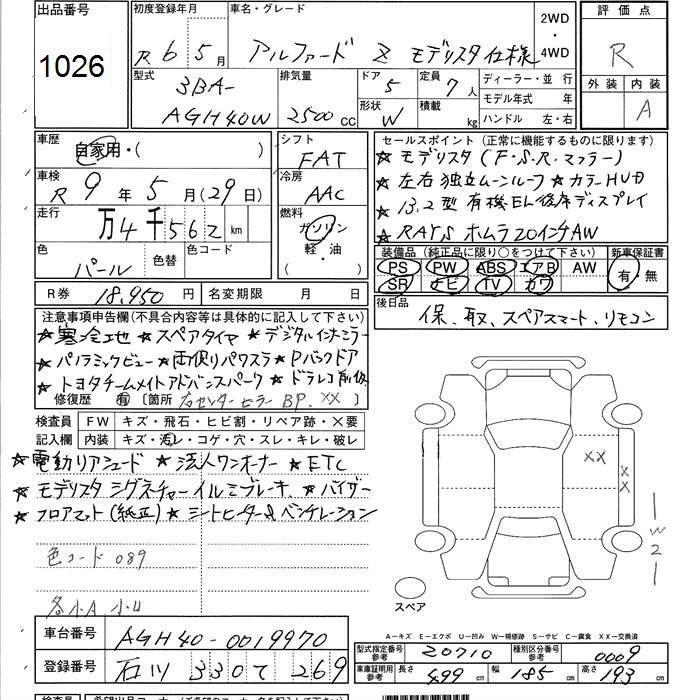 出品番号
1026
初度登録年月
R 6 5月
車名・グレード
アルファード Z モデリスタ仕様
2WD
・
4WD
評価点
R
外装 内装
A
型式
3BA-
AGH40W
排気量
2500 CC
ドア
5
形状
W
定員
7人
積載
kg
ディーラー・並 行
モデル年式 年
ハンドル 左・右
車歴
自家用・( )
シフト
FAT
車検
R 9年 5月(29日)
冷房
AAC
走行
万4千562 km
燃料
ガソリン
軽・油
( ・ )
色
パール
色替
色コード
R券 18,950円
名変期限 月 日
セールスポイント(正常に機能するものに限ります)
★ モデリスタ (F・S・R・マフラー)
★ 左右独立ムーンルーフ ★ カラーHUD
★ 13.2型有機EL後席ディスプレイ
★ RAYS ホムラ20インチAW
装備品(純正品に限り○をつけて下さい)
PS PW ABS エアB AW
SR ナビ TV カワ
新車保証書
有・無
後日品
保、取、スペアスマート、リモコン
注意事項申告欄(不具合内容等は具体的に記入して下さい)
★寒冷地 ★スペアタイヤ ★デジタルインナーミラー
★パノラミックビュー ★両側パワスラ ★Pバックドア
★トヨタチームメイトアドバンスパーク ★ドラレコ前後
修復歴 有 〔箇所 右センターピラー BP. XX〕
検査員
記入欄
FW キズ・飛石・ヒビ割・リペア跡・×要
内装 キズ・汚レ・コゲ・穴・スレ・キレ・破レ
★電動リアシェード ★法人ワンオーナー ★ETC
★モデリスタ シグネチャーイルミブレーキ ★バイザー
★フロアマット(純正) ★シートヒーター&ベンチレーション
色コード 089
各小A 小U
XX
XX
W2
スペア
A―キズ E―エクボ U―凹み W―補修跡 S―サビ C―腐食 XX―交換済
車台番号 AGH40-0019970
登録番号 石川 330 て 269
型式指定番号
参考
20710
種別区分番号
参考
0009
車庫証明用
参考
長さ 499 cm
幅 185 cm
高さ 193 cm